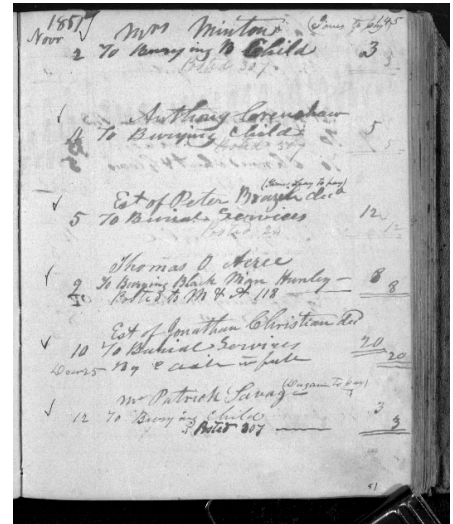 1851 Mrs Minton (Jones to pay) 145
Novr 2 To Burying B Child 3 3
Posted 307
Anthony Crenshaw
4 To Burying Child 5 5
Posted 307
Est of Peter Brazeh decd
5 To Burial Services 12 12
Posted
Thomas O. Acree
9 To Burying Black Man Hunley — 8 8
Posted to M & A 118
Est of Jonathan Christian decd
10 To Burial Services 20 20
Decr 25 By Cash in full
Mr Patrick Savage (Dugan to pay)
12 To Burying Child 3 3
Posted 307
51